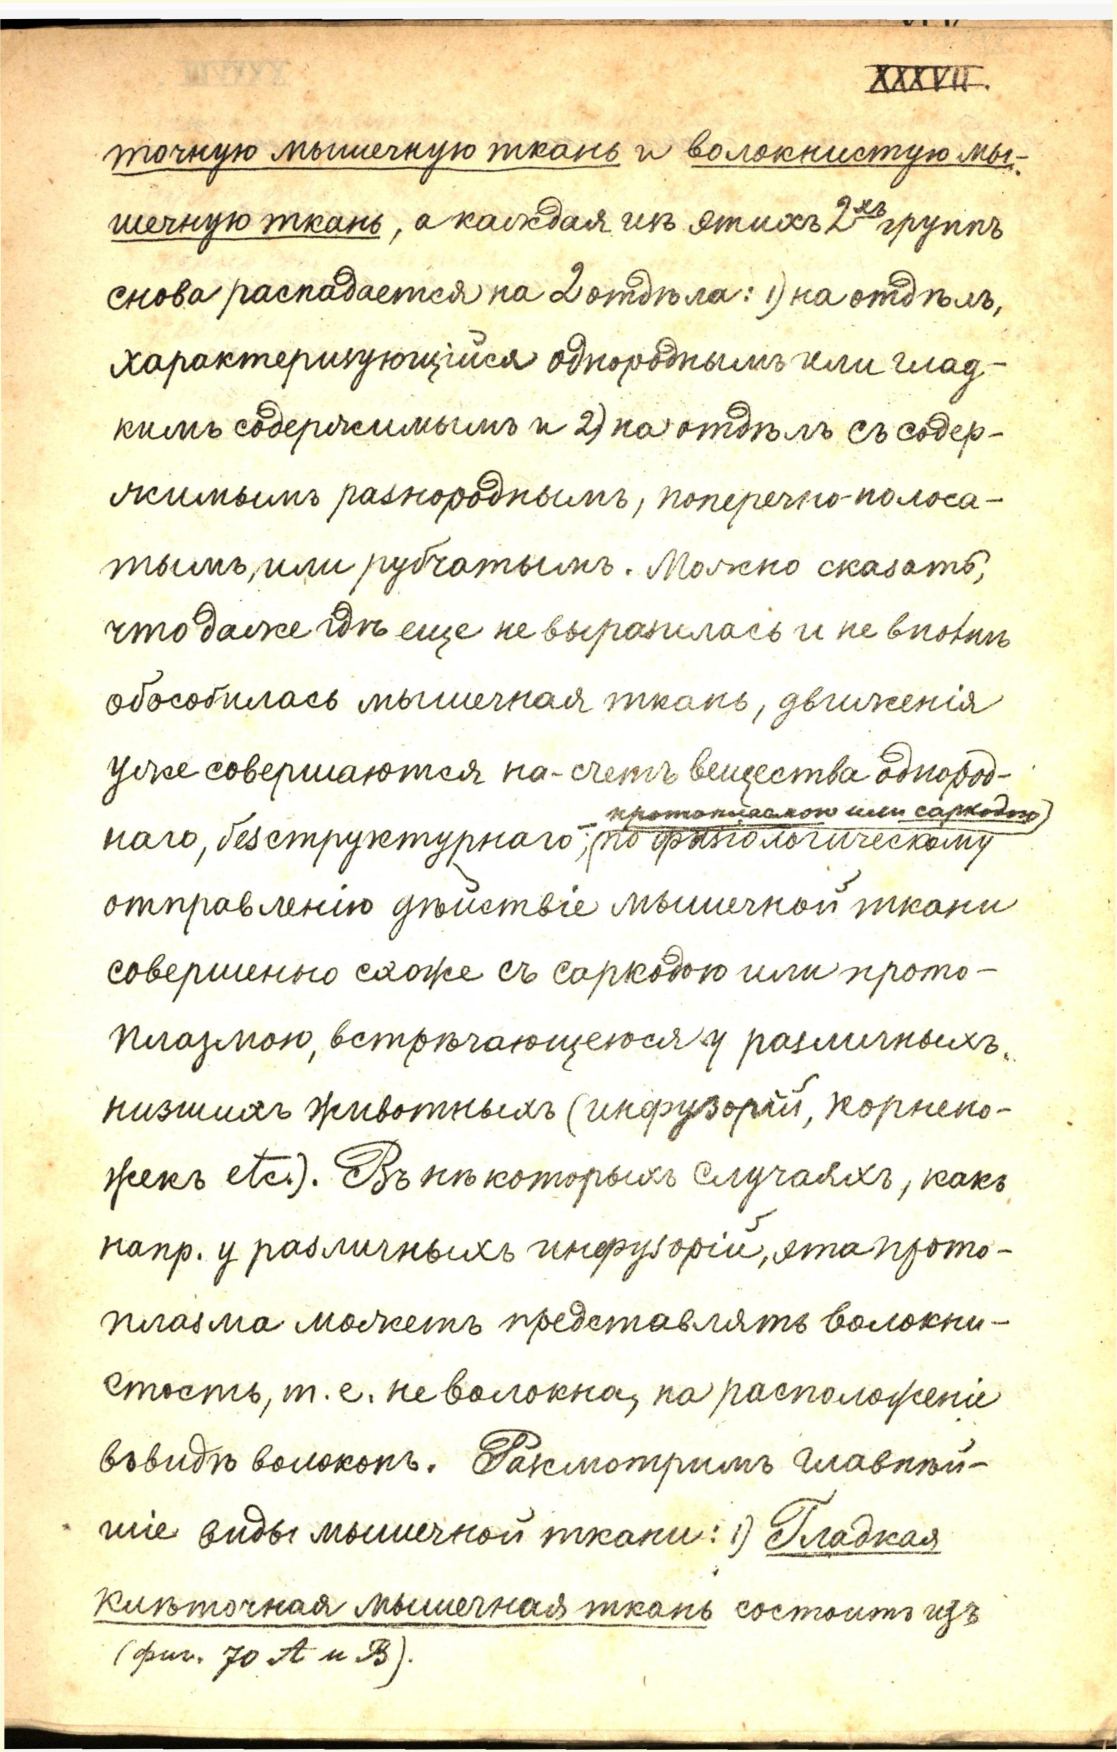 XXXVII.
точную мышечную ткань и волокнистую мы-
шечную ткань, а каждая изъ этихъ 2хъ группъ
снова распадается на 2 отдѣла: 1) на отдѣлъ,
характеризующійся однороднымъ или глад-
кимъ содержимымъ и 2) на отдѣлъ съ содер-
жимымъ разнороднымъ, поперечно-полоса-
тымъ, или рубчатымъ. Можно сказать,
что даже гдѣ еще не выразилась и не вполнѣ
обособилась мышечная ткань, движенія
уже совершаются на-счетъ вещества однород-
протоплазмою или саркодою)
наго, безструктурнаго; (по физіологическому
отправленію дѣйствіе мышечной ткани
совершенно схоже съ саркодою или прото-
плазмою, встрѣчающеюся у различныхъ
низшихъ животныхъ (инфузорій, корнено-
жекъ etc.). Въ нѣкоторыхъ случаяхъ, какъ
напр. у различныхъ инфузорій, эта прото-
плазма можетъ представлять волокни-
стость, т. е. не волокна, на расположеніе
въ видѣ волоконъ. Разсмотримъ главнѣй-
шіе виды мышечной ткани: 1) Гладкая
клѣточная мышечная ткань состоитъ изъ
(фиг. 70 А и В).